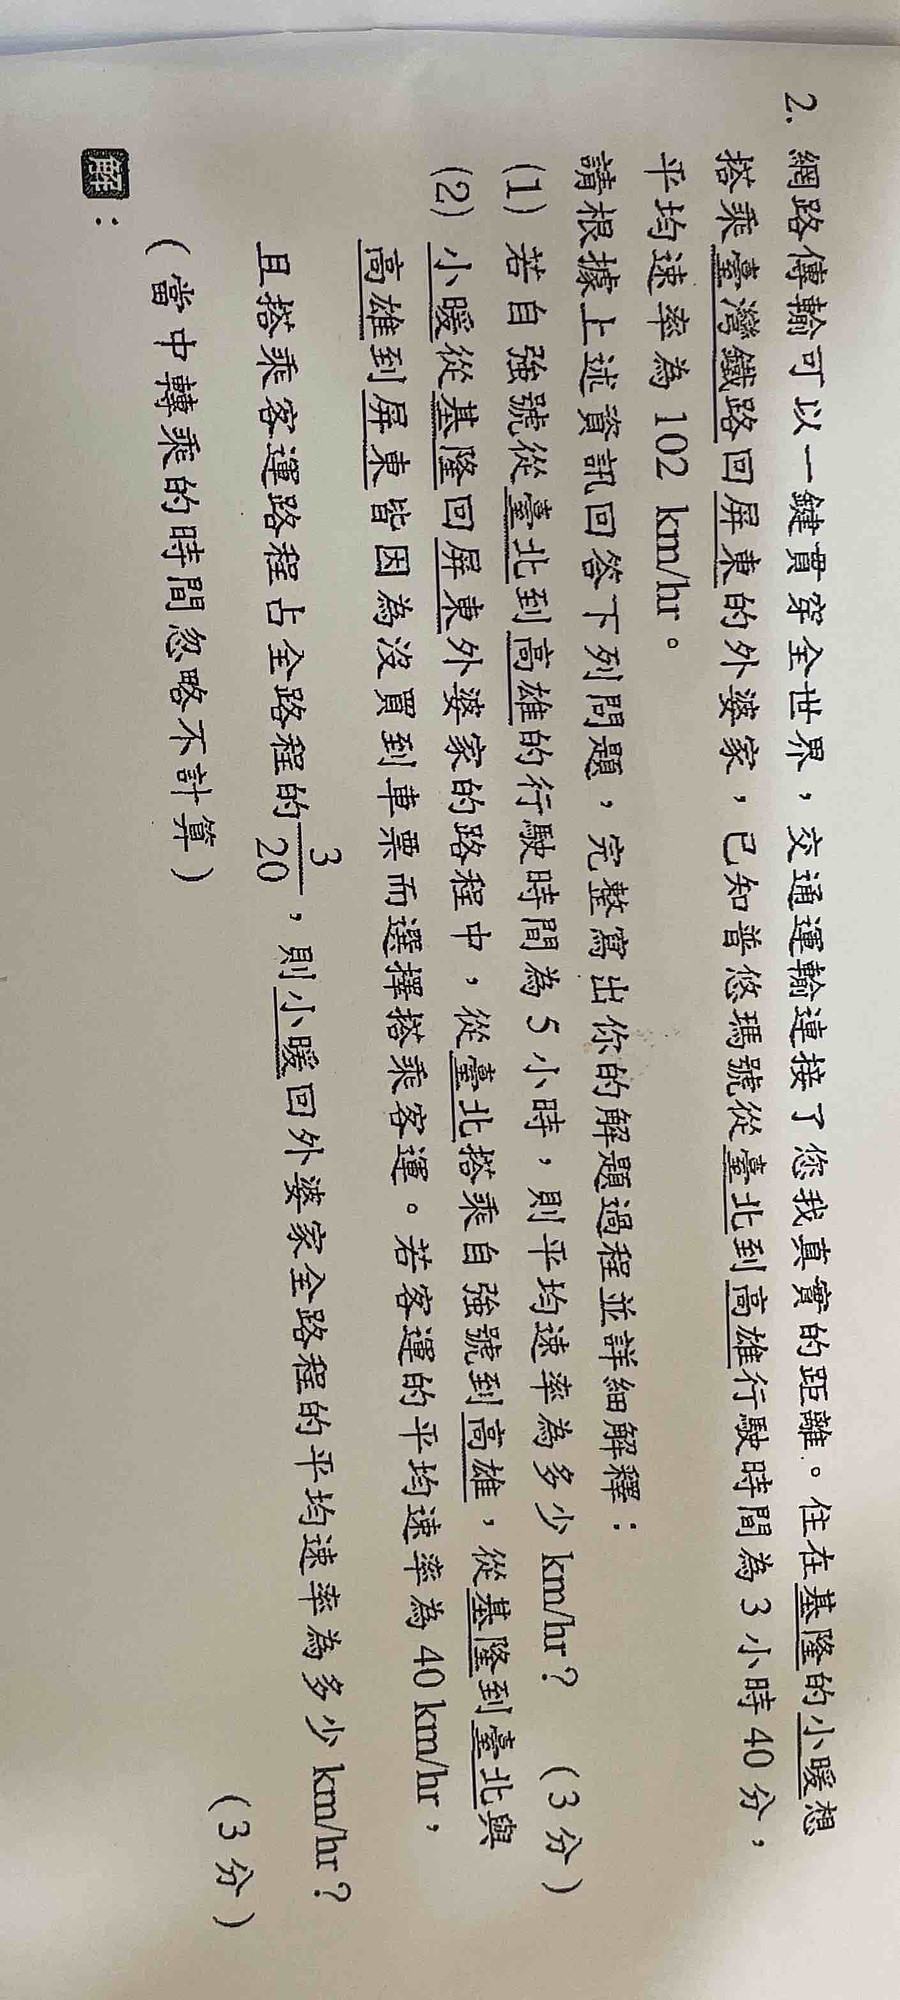 2. 網路傳輸可以一鍵貫穿全世界，交通運輸連接了您我真實的距離。住在基隆的小暖想
搭乘臺灣鐵路回屏東的外婆家，已知普悠瑪號從臺北到高雄行駛時間為 3 小時 40 分，
平均速率為 102 km/hr。
請根據上述資訊回答下列問題，完整寫出你的解題過程並詳細解釋：
(1) 若自強號從臺北到高雄的行駛時間為 5 小時，則平均速率為多少 km/hr？ (3 分)
(2) 小暖從基隆回屏東外婆家的路程中，從臺北搭乘自強號到高雄，從基隆到臺北與
高雄到屏東皆因為沒買到車票而選擇搭乘客運。若客運的平均速率為 40 km/hr，
且搭乘客運路程占全路程的 3/20，則小暖回外婆家全路程的平均速率為多少 km/hr？
(當中轉乘的時間忽略不計算) (3 分)
解：